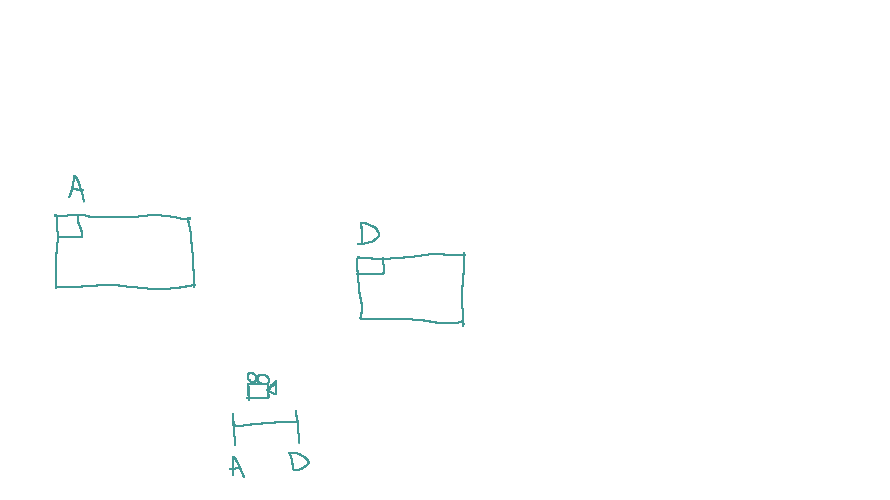 A
D
A D